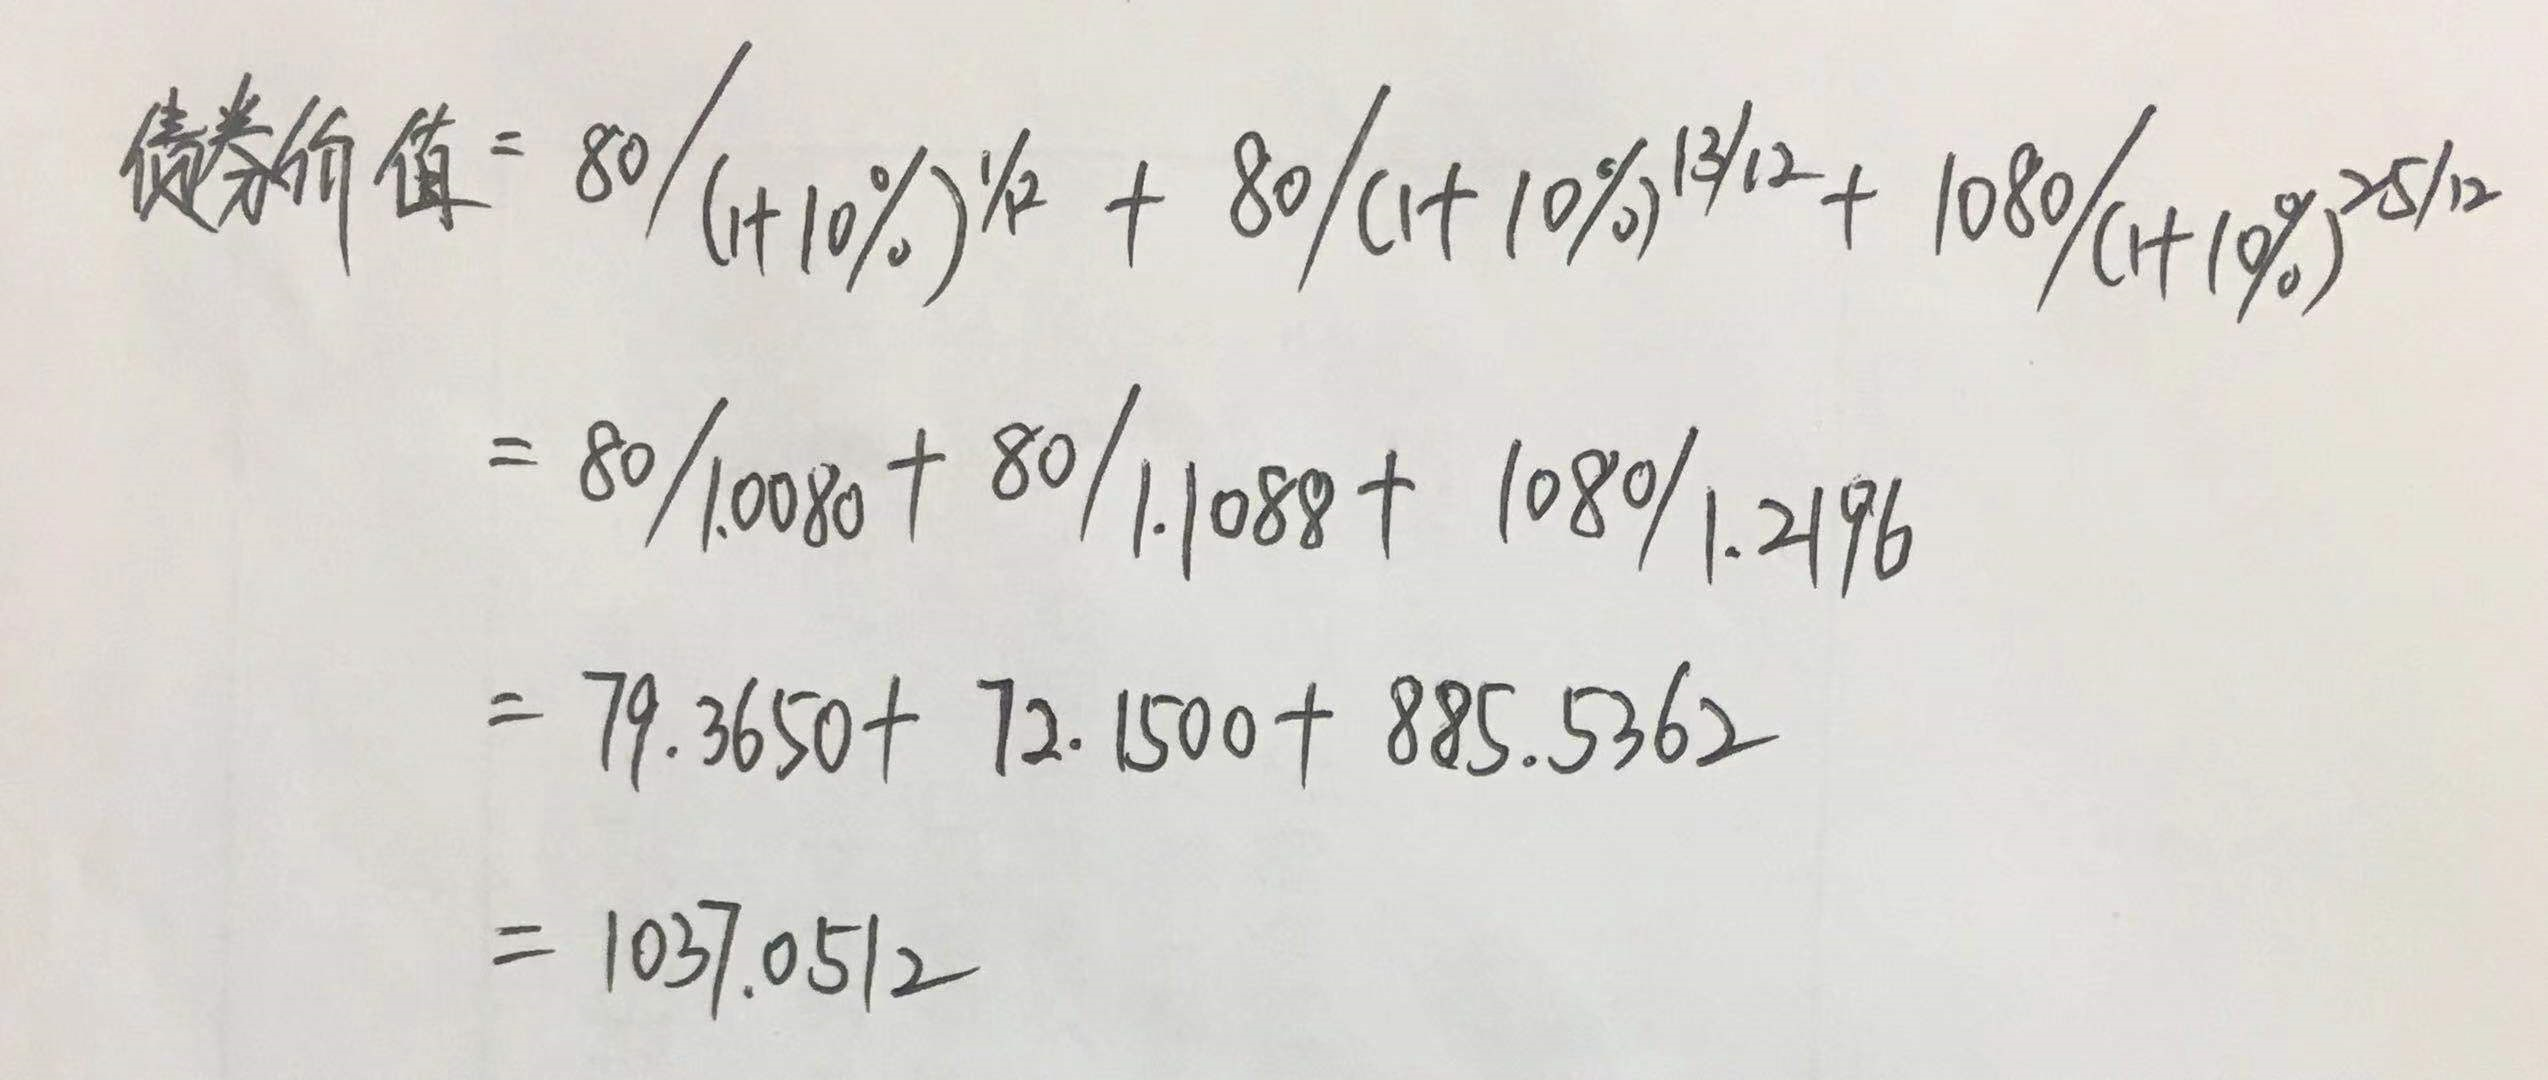 债券价值 = 80/(1+10%)^1/12 + 80/(1+10%)^13/12 + 1080/(1+10%)^25/12
= 80/1.0080 + 80/1.1088 + 1080/1.2196
= 79.3650 + 72.1500 + 885.5362
= 1037.0512